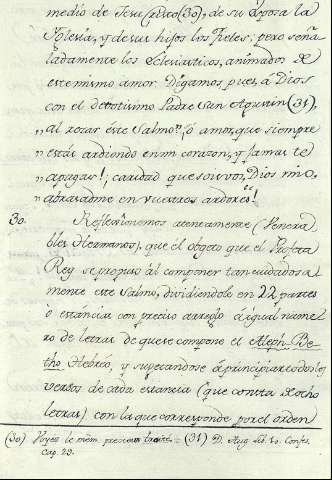 medio de Jesu Cristo (30), de su Esposa la
Iglesia, y de sus hijos los fieles; pero seña-
ladamente los Eclesiasticos, animados de
este mismo amor. Digamos pues, à Dios
con el devotisimo Padre San Agustin (31),
„ al rezar éste Salmo: „ó amor, que siempre
„ estás ardiendo en mi corazon, y jamas te
„ apagas!; caridad que sois vos, Dios mio,
„ abrasadme en vuestros ardores"!
30. Reflexionemos atentamente (Venera-
bles Hermanos), que el objeto que el Profeta
Rey se propuso ál componer tan cuidadosa-
mente este Salmo, dividiendole en 22 partes
ò estancias con preciso arreglo à igual nume-
ro de letras de que se compone el Aleph-Be-
tho Hebréo, y sujetandose à principiar todos los
versos de cada estancia (que consta de ocho
letras) con la que corresponde por el orden
(30) Hoyes le mèm. precieux = (31) D. Aug. Lib. 10. Confes.
cap. 29.